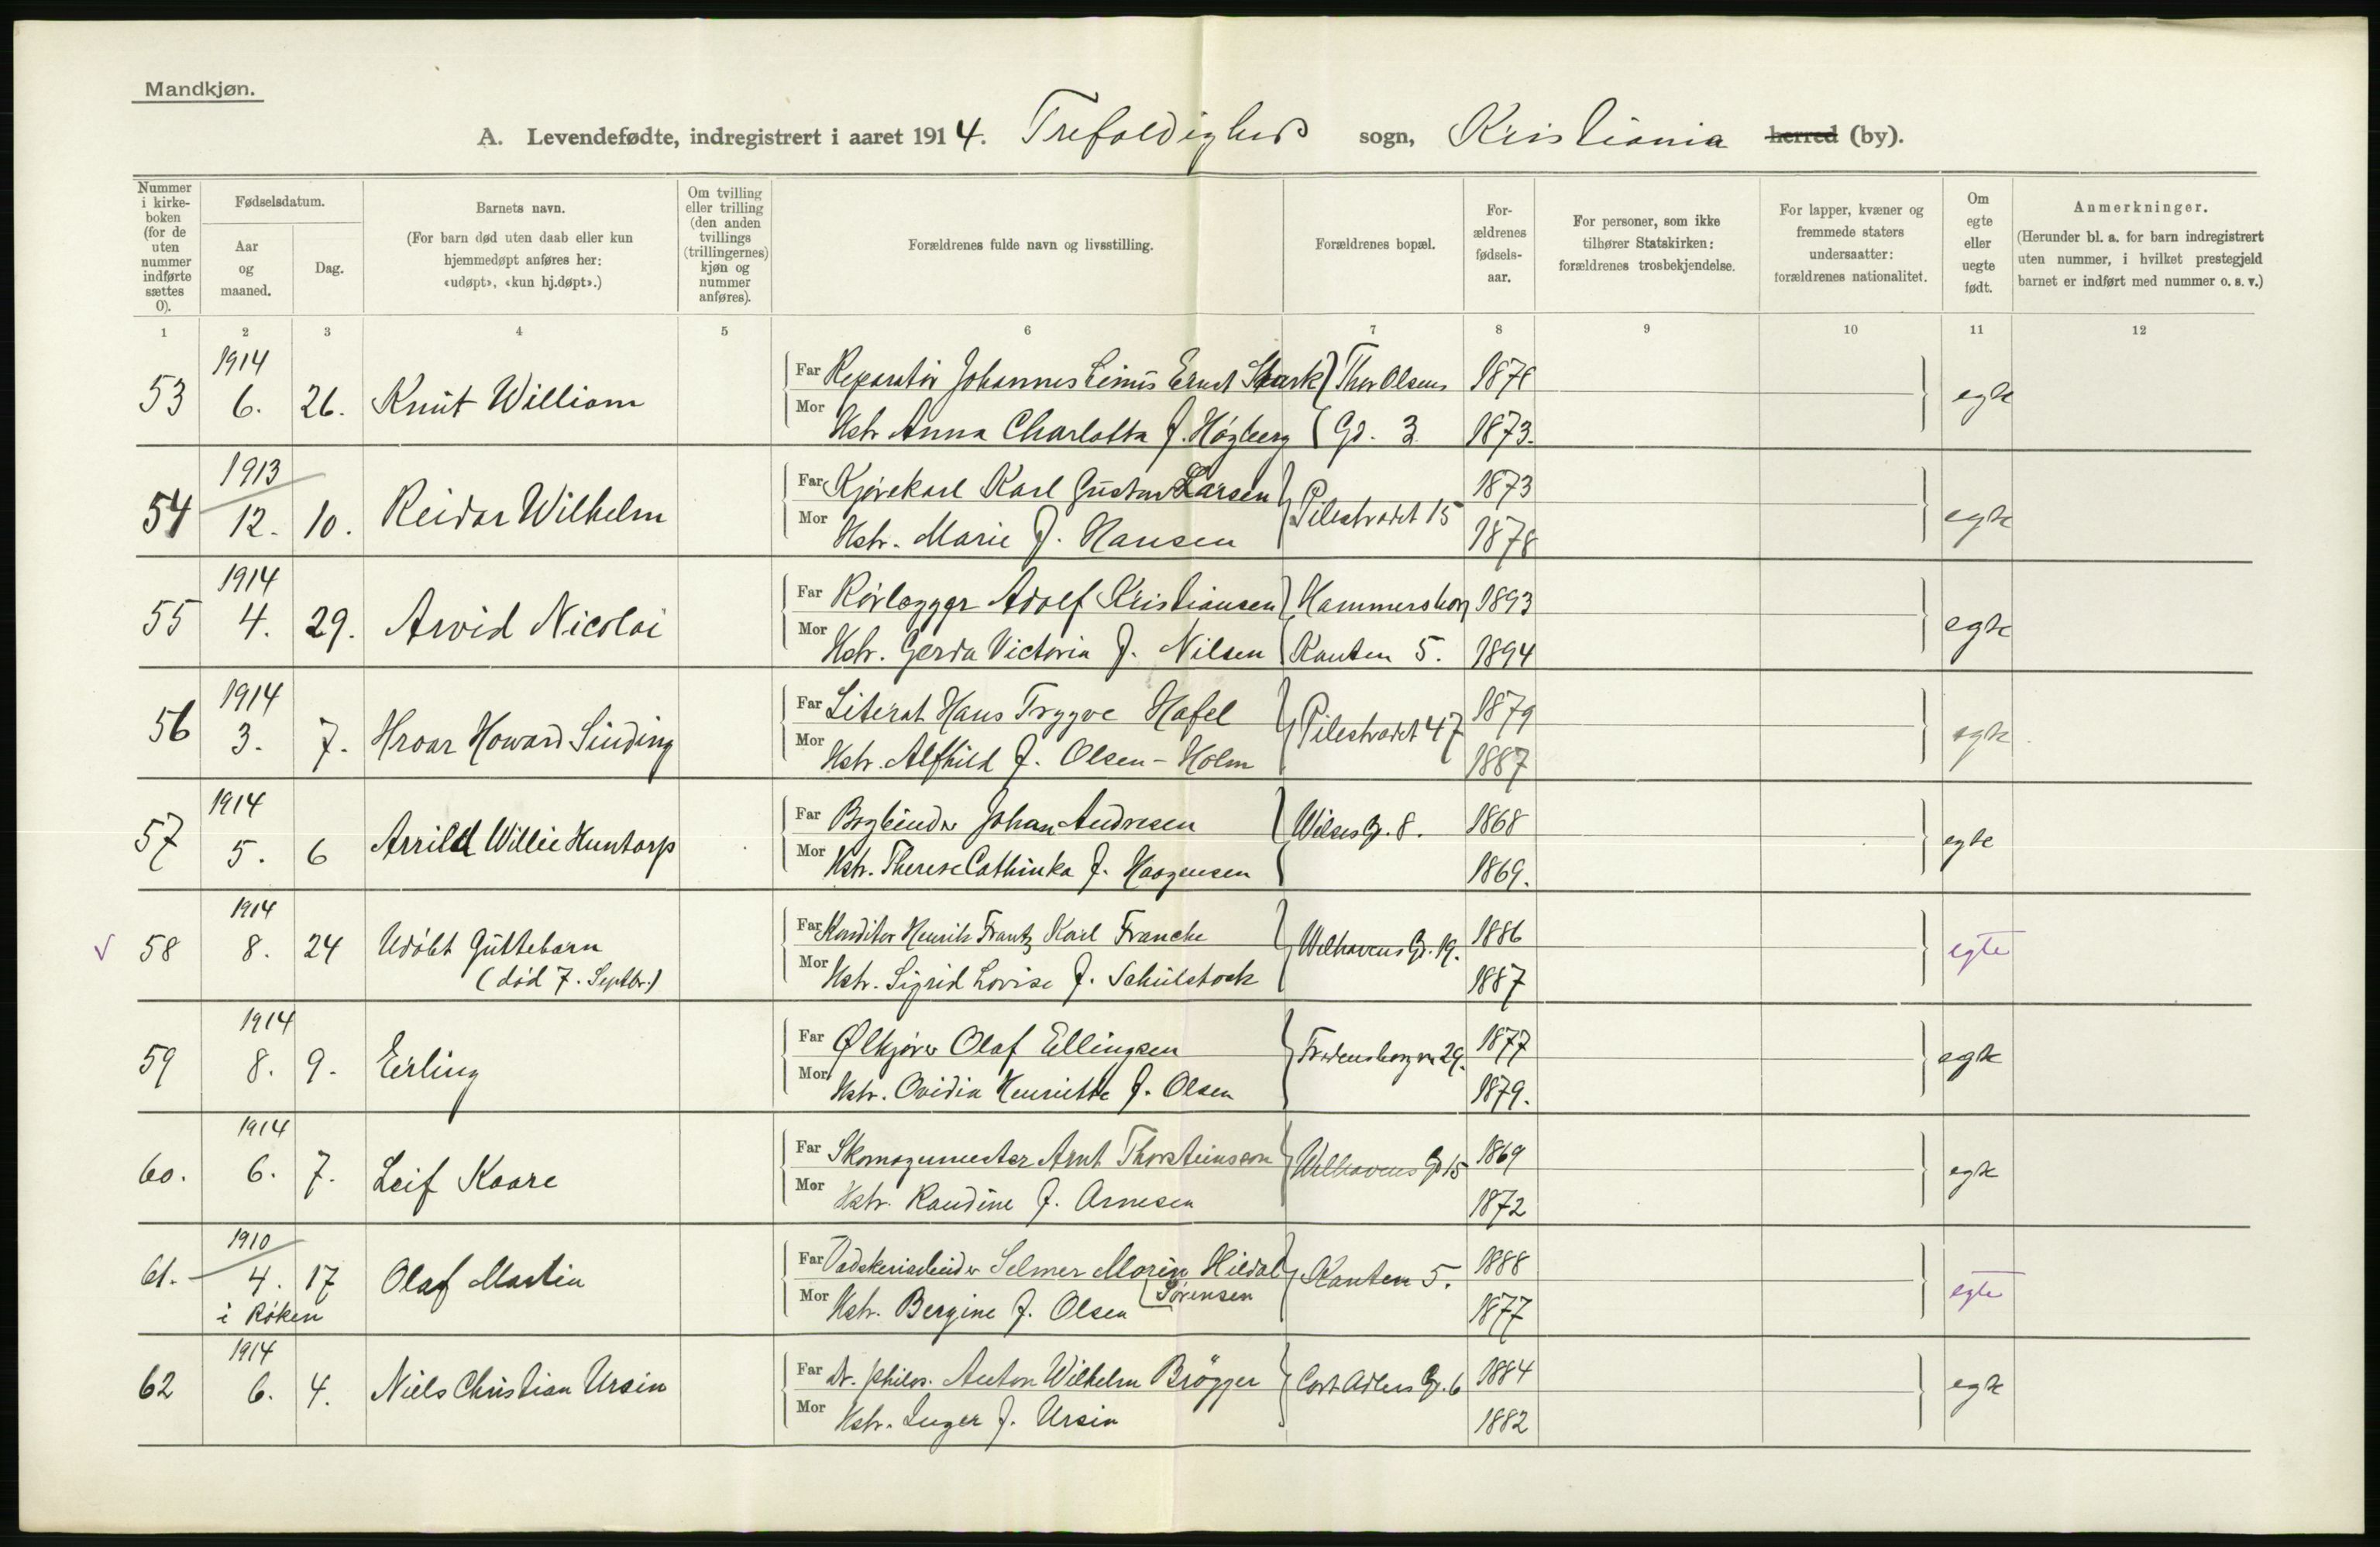 Mandkjøn.
A. Levendefødte, indregistrert i aaret 1914. Trefoldigheds sogn, Kristiania herred (by).
Nummer i kirke-boken (for de uten nummer indførte sættes 0).
Fødselsdatum.
Aar og maaned.
Dag.
Barnets navn.
(For barn død uten daab eller kun hjemmedøpt anføres her: «udøpt», «kun hj.døpt».)
Om tvilling eller trilling (den anden tvillings (trillingernes) kjøn og nummer anføres).
Forældrenes fulde navn og livsstilling.
Forældrenes bopæl.
For-ældrenes fødsels-aar.
For personer, som ikke tilhører Statskirken: forældrenes trosbekjendelse.
For lapper, kvæner og fremmede staters undersaatter: forældrenes nationalitet.
Om egte eller uegte født.
Anmerkninger.
(Herunder bl. a. for barn indregistrert uten nummer, i hvilket prestegjeld barnet er indført med nummer o. s. v.)
1 2 3 4 5 6 7 8 9 10 11 12
1914
53 6. 26. Knut William
Far Reparatør Johannes Linus Ernst Stark Thor Olsens 1878
Mor Hstr. Anna Charlotta f. Högberg Gd. 3 1873.
egte
1913
54 12. 10. Reidar Wilhelm
Far Kjørekarl Karl Gustav Larsen Pilestrædet 15 1873
Mor Hstr. Marie f. Hansen 1878
egte
1914
55 4. 29. Arvid Nicolai
Far Rørlægger Adolf Kristiansen Hammersborg 1893
Mor Hstr. Gerda Victoria f. Nilsen Kanten 5. 1894
egte
1914
56 3. 7. Hroar Howard Sinding
Far Literat Hans Trygve Hafel Pilestrædet 47 1879
Mor Hstr. Alfhild f. Olsen-Holm 1887
egte
1914
57 5. 6 Arild Willie Huntorp
Far Bogbinder Johan Andresen Wilses G. 8. 1868
Mor Hstr. Therese Cathinka f. Haagensen 1869.
egte
1914
58 8. 24 Udöbt Guttebarn
(död 7. Septbr.)
Far Konditor Henrik Frantz Karl Francke Welhavens G. 19. 1886
Mor Hstr. Sigrid Lovise f. Schulstock 1887
egte
1914
59 8. 9. Erling
Far Ølkjører Olaf Ellingsen Fredensborgv. 29. 1877
Mor Hstr. Ovidia Henriette f. Olsen 1879.
egte
1914
60. 6. 7. Leif Kaare
Far Skomagermester Arnt Thorsteinson Welhavens G 15 1869
Mor Hstr. Randine f. Arnesen 1872
egte
1910
61. 4. 17 Olaf Martin
i Röken
Far Vaskeriarbeider Selmer Morin Hildal Kanten 5. 1888
Sørensen
Mor Hstr. Bergine f. Olsen 1877
egte
1914
62 6. 4. Niels Christian Ursin
Far Dr. philos. Anton Wilhelm Brøgger Cort Adlers G. 6 1884
Mor Hstr. Inger f. Ursin 1882
egte